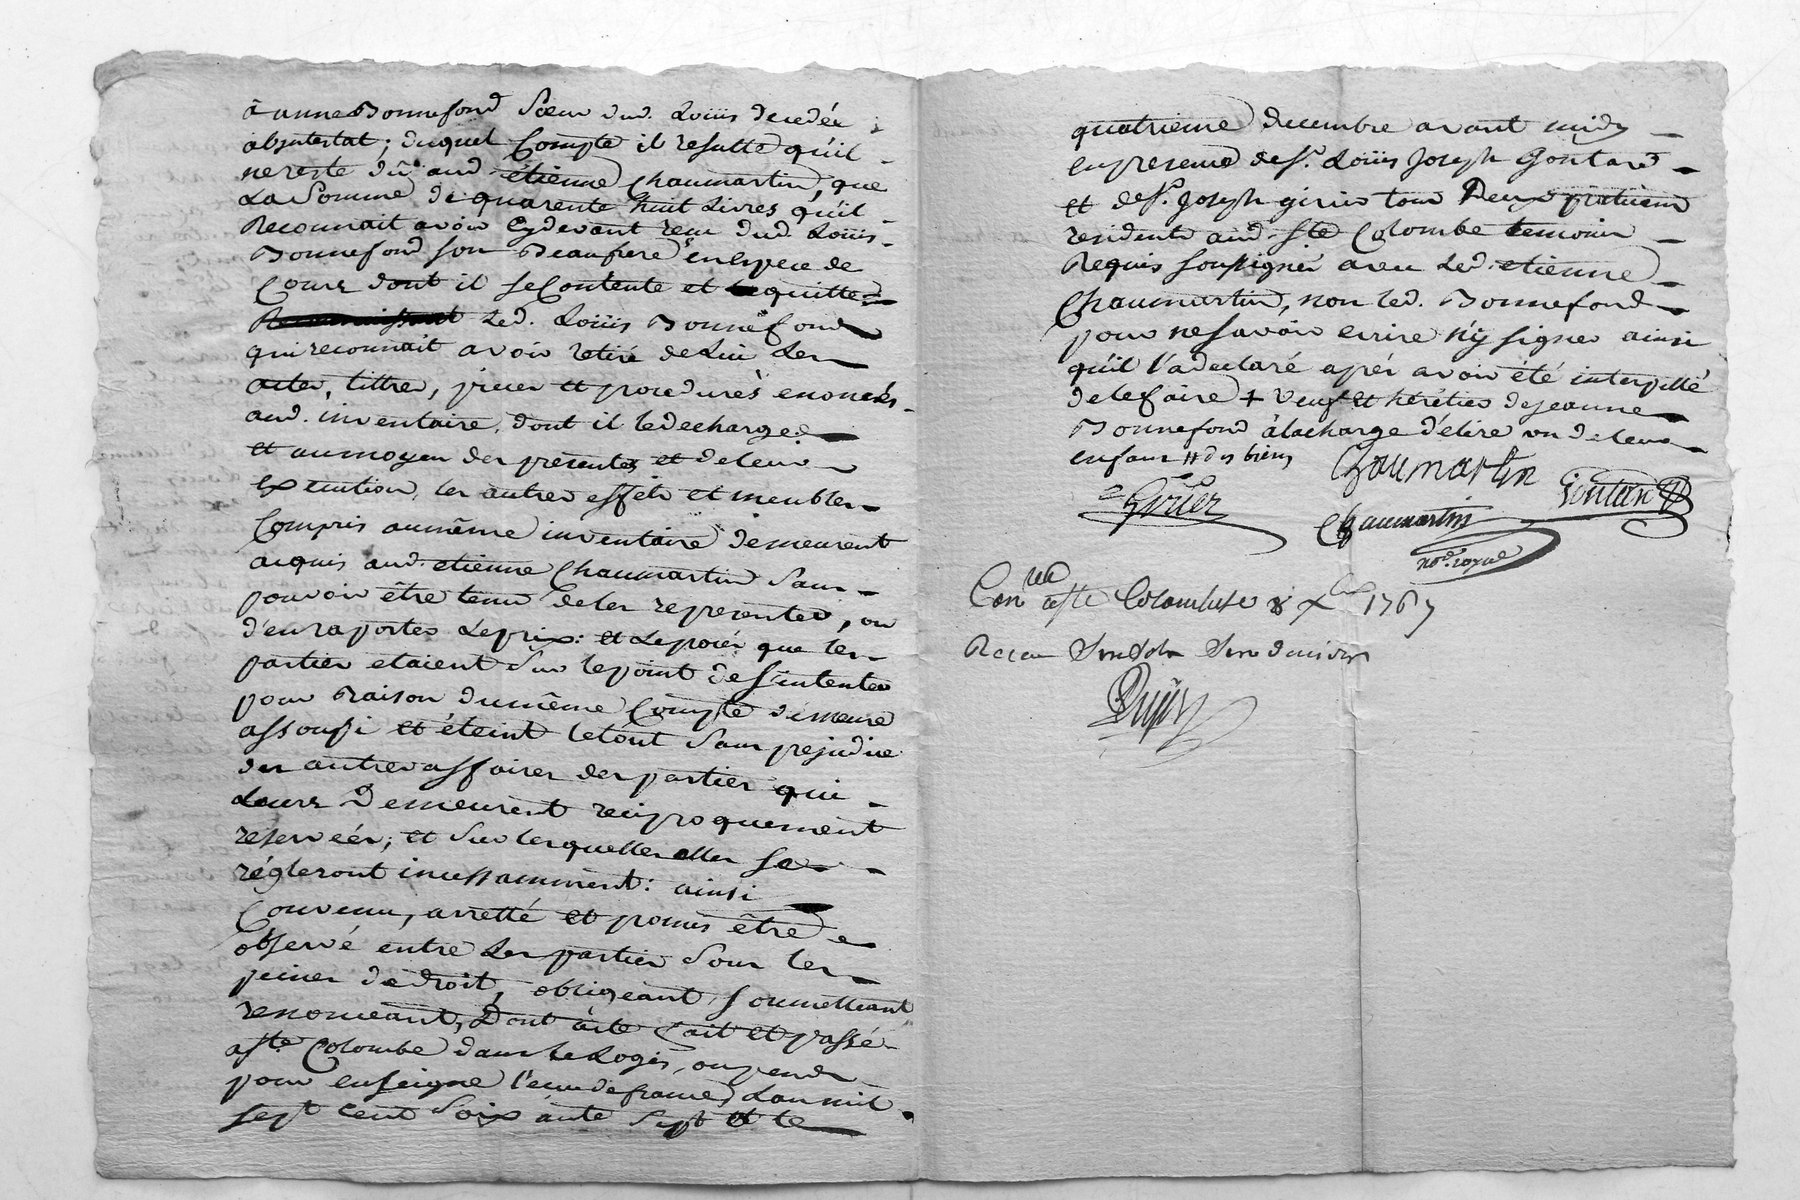 à anne Bonnefond Sœur dud. Loüis decedée
abintestat; duquel Compte il resulte qu'il
ne reste dû aud. étienne Chaumartin, que
La Somme de quarente huit Livres qu'il
Reconnait avoir Cydevant reçu dud. Loüis
Bonnefond son Beaufrere en espece de
Cours dont il se Contente et
Led. Loüis Bonnefond
qui reconnait avoir retiré de Lui Les
actes, tittres, pieces et procedures enoncés
aud. inventaire, dont il le decharge
et au moyen des presentes et de leur
execution, les autres effets et meubles
Compris au même inventaire demeurent
acquis aud. etienne Chaumartin Sans
pouvoir être tenu de les representer, ou
d'en raporter Le prix: et Le procés que les
parties etaient Sur le point de S'intenter
pour Raison du même Compte demeure
assoupi et éteint le tout Sans prejudice
des autres affaires des parties qui
Leurs Demeurent reciproquement
reservées; et Sur lesquelles elles Se
régleront incessamment: ainsi
Convenu, arretté et promis être
observé entre Les parties Sous les
peines de droit, obligeant, Soumettant
renonceant, Dont acte fait et passé
a Ste Colombe dans le Logis, ou pend
pour enseigne l'ecu de france, L'an mil
Sept cent Soixante Sept et le
quatrieme decembre avant midy
en presence de Sr. Loüis Joseph Gontard
et de Sr. Joseph girier tous Deux praticiens
residents aud. Ste Colombe temoins
Requis Soussignés avec Led. etienne
Chaumartin, non led. Bonnefond
pour ne Savoir ecrire n'y signer ainsi
qu'il l'a declaré aprés avoir été interpellé
de le faire + veuf et héritier de jeanne
Bonnefond à la charge d'élire un de leurs
enfans # des biens
Chaumartin
Girier
Gontard
Chaumartin
nore. royal
Conlé a Ste Colombe le 8 Xbre 1767
Recu